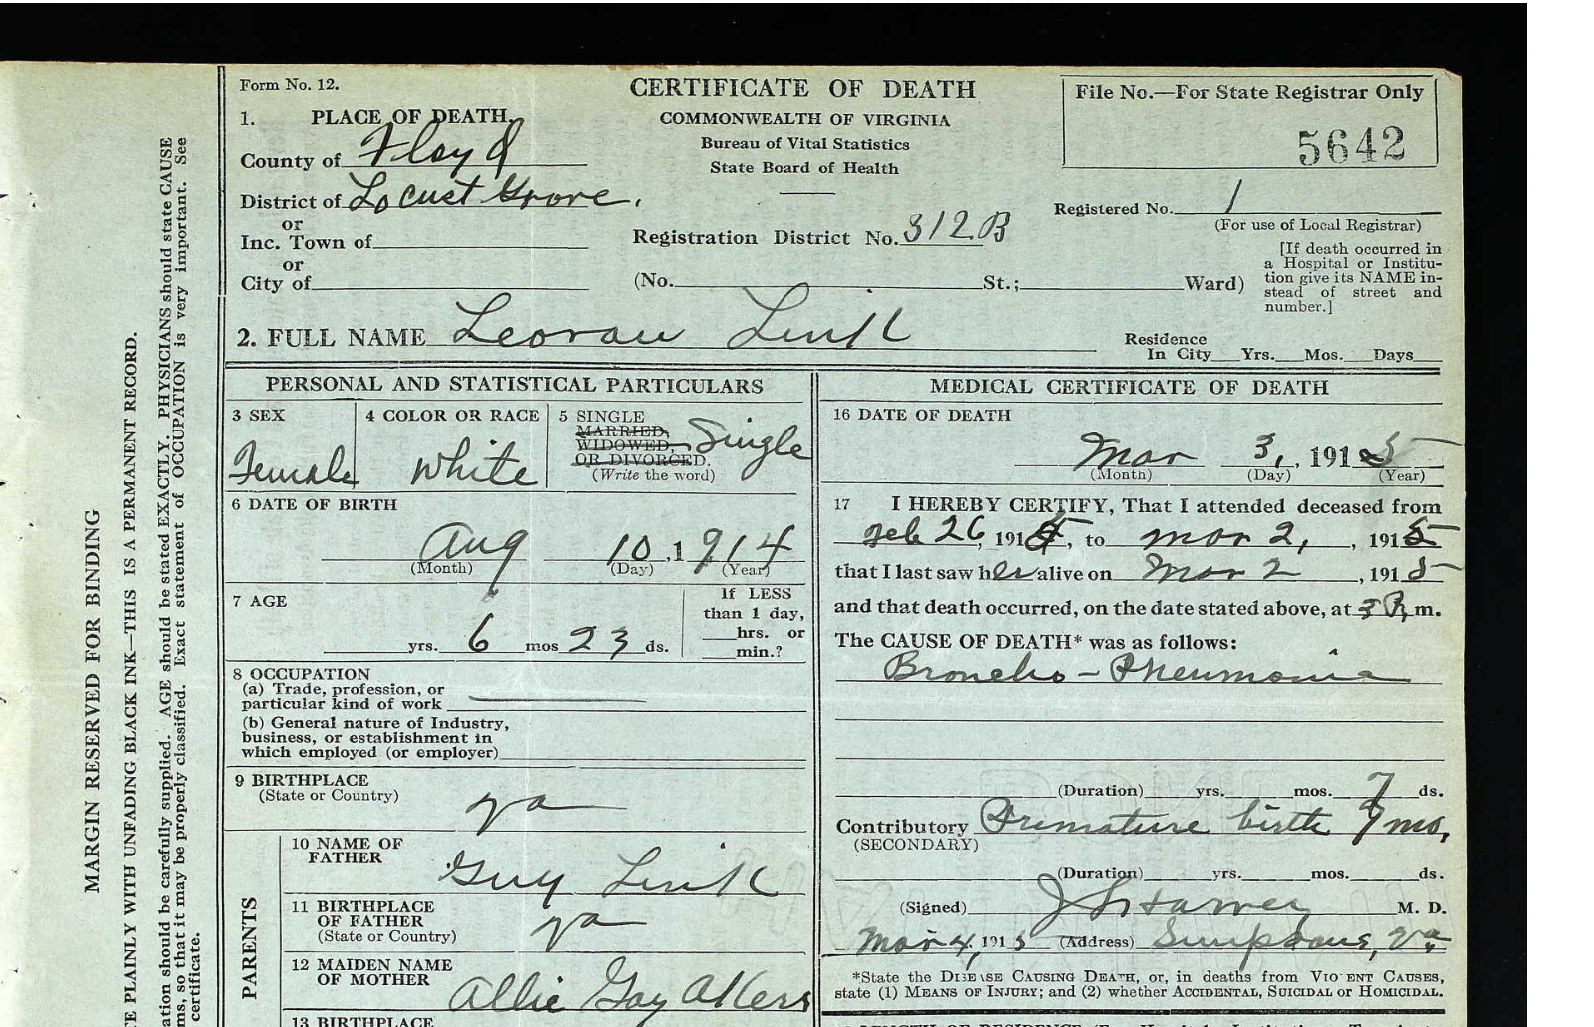 Form No. 12.
CERTIFICATE OF DEATH
COMMONWEALTH OF VIRGINIA
Bureau of Vital Statistics
State Board of Health
File No.—For State Registrar Only
5642
1. PLACE OF DEATH.
County of Floyd
District of Locust Grove.
or
Inc. Town of
or
City of
Registration District No. 312B
Registered No. 1
(For use of Local Registrar)
(No. St.; Ward)
[If death occurred in
a Hospital or Institu-
tion give its NAME in-
stead of street and
number.]
2. FULL NAME
Residence
In City Yrs. Mos. Days
PERSONAL AND STATISTICAL PARTICULARS
3 SEX
Female
4 COLOR OR RACE
White
5 SINGLE
MARRIED,
WIDOWED,
OR DIVORCED.
(Write the word)
Single
6 DATE OF BIRTH
Aug 10, 1914
(Month) (Day) (Year)
7 AGE
yrs. 6 mos 23 ds.
If LESS
than 1 day,
hrs. or
min.?
8 OCCUPATION
(a) Trade, profession, or
particular kind of work
(b) General nature of Industry,
business, or establishment in
which employed (or employer)
9 BIRTHPLACE
(State or Country)
Va
PARENTS
10 NAME OF
FATHER
Guy
11 BIRTHPLACE
OF FATHER
(State or Country)
Va
12 MAIDEN NAME
OF MOTHER
Allie Gay Akers
13 BIRTHPLACE
MEDICAL CERTIFICATE OF DEATH
16 DATE OF DEATH
Mar 3, 1915
(Month) (Day) (Year)
17 I HEREBY CERTIFY, That I attended deceased from
Feb 26, 1915, to Mar 2, , 1915
that I last saw her alive on Mar 2 , 1915
and that death occurred, on the date stated above, at 3 P, m.
The CAUSE OF DEATH* was as follows:
Broncho-Pneumonia
(Duration) yrs. mos. 7 ds.
Contributory Premature birth 7 mo,
(SECONDARY)
(Duration) yrs. mos. ds.
(Signed) Harvey M. D.
Mar 4, 1915 (Address) Simpsons, Va
*State the DISEASE CAUSING DEATH, or, in deaths from VIOLENT CAUSES,
state (1) MEANS OF INJURY; and (2) whether ACCIDENTAL, SUICIDAL or HOMICIDAL.
MARGIN RESERVED FOR BINDING
PLAINLY WITH UNFADING BLACK INK—THIS IS A PERMANENT RECORD.
should be carefully supplied. AGE should be stated EXACTLY. PHYSICIANS should state CAUSE
so that it may be properly classified. Exact statement of OCCUPATION is very important. See
certificate.